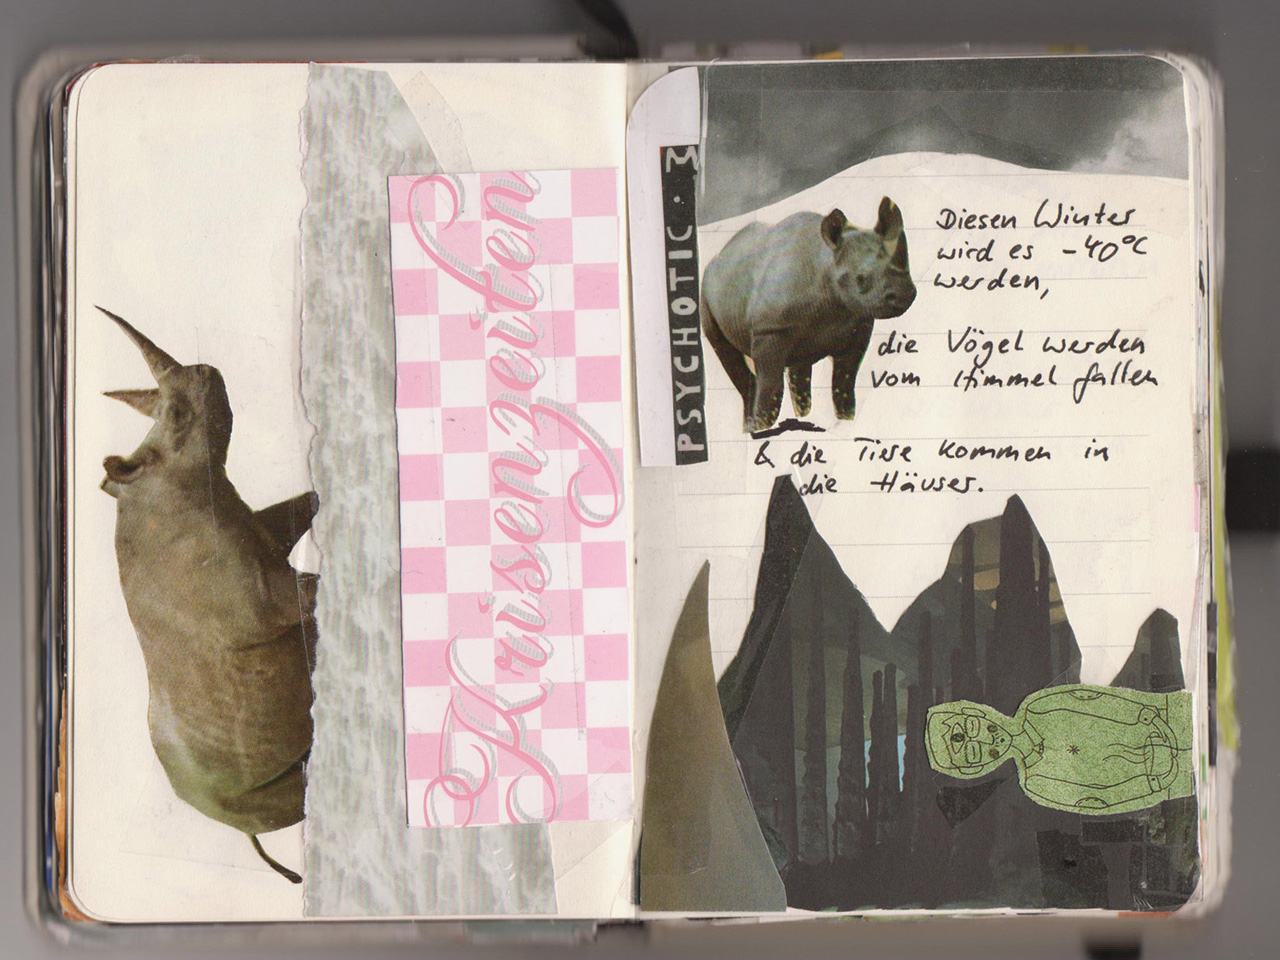 Krisenzeiten
PSYCHOTIC · M
Diesen Winter
wird es -40°C
werden,
die Vögel werden
vom Himmel fallen
& die Tiere kommen in
die Häuser.